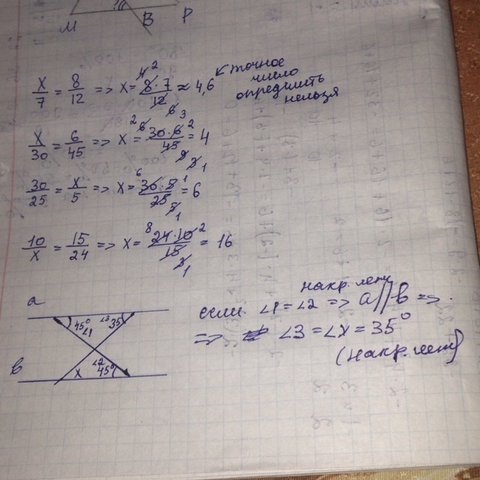 M B P
x/7 = 8/12 => x = 8·7/12 ≈ 4,6 точное
число
определить
нельзя
4 2
6 3
x/30 = 6/45 => x = 30·6/45 = 4
2 6 2
9 3 1
30/25 = x/5 => x = 30·5/25 = 6
6 1
5 1
10/x = 15/24 => x = 24·10/15 = 16
8 2
3 1
a
45° ∠1 ∠3 35°
b
x ∠2 45°
накр. леж
если ∠1 = ∠2 => a∥b =>
=> ∠3 = ∠x = 35°
(накр. леж)